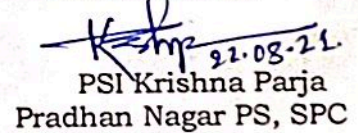 22.08.21.
PSI Krishna Parja
Pradhan Nagar PS, SPC